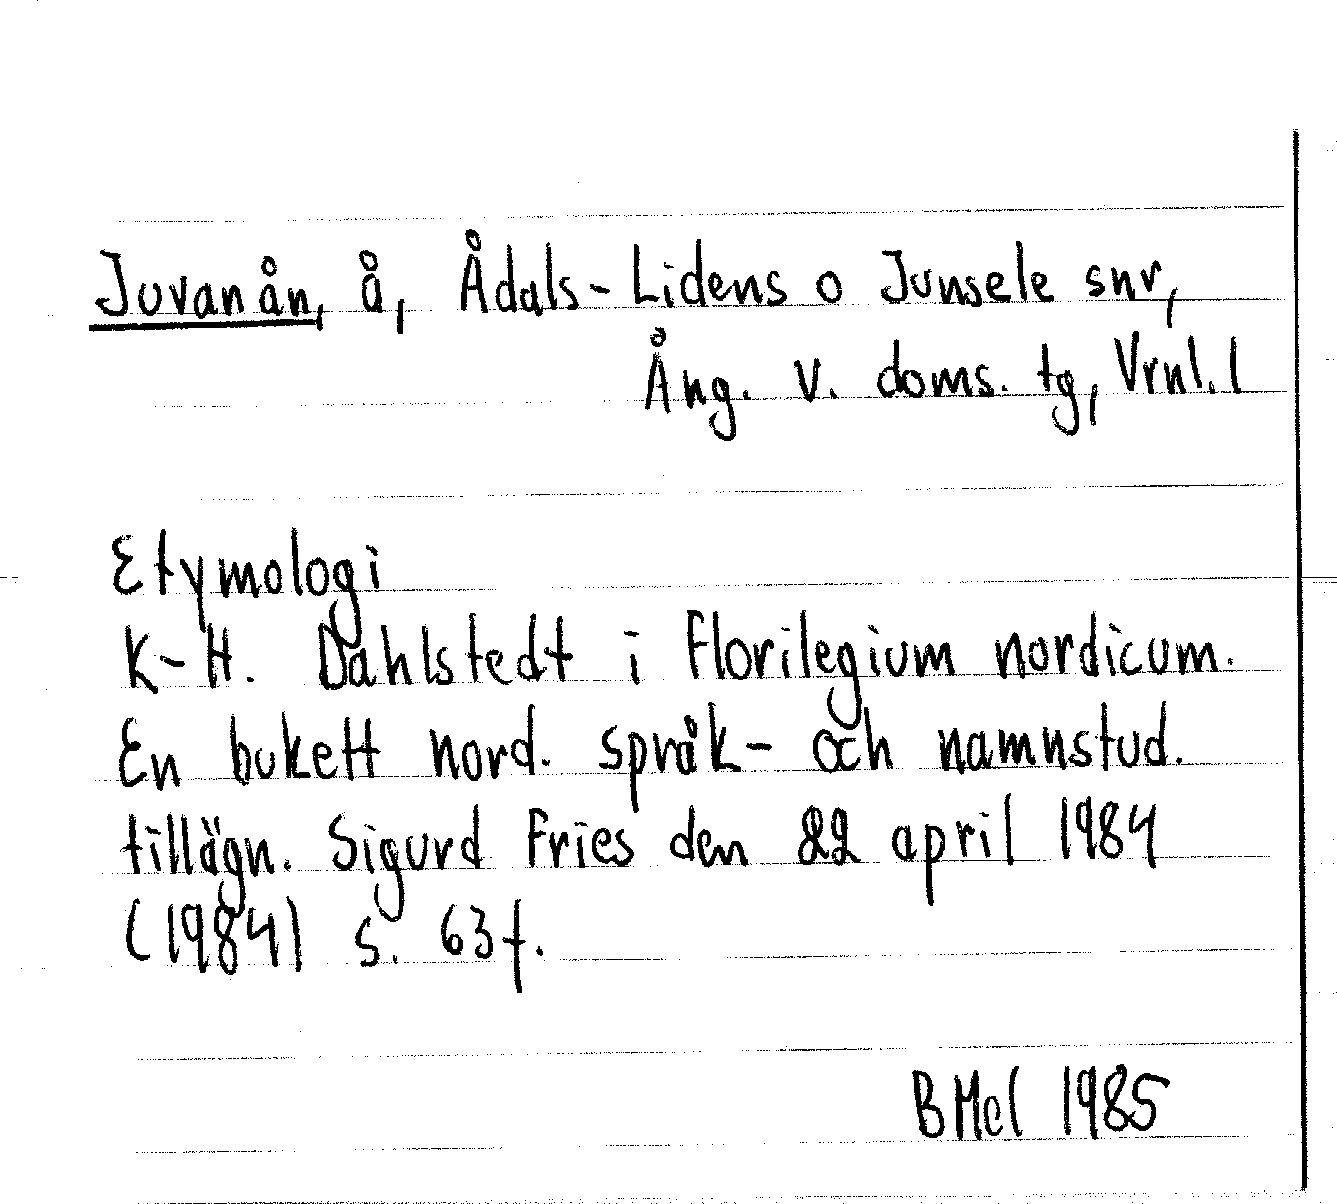 Juvanån, å, Ådals-Lidens o Junsele snr,
Ång. v. doms. tg, Vrnl. l
Etymologi
K-H. Dahlstedt i Florilegium nordicum.
En bukett nord. språk- och namnstud.
tillägn. Sigurd Fries den 22 april 1984
(1984) s. 63f.
BMel 1985